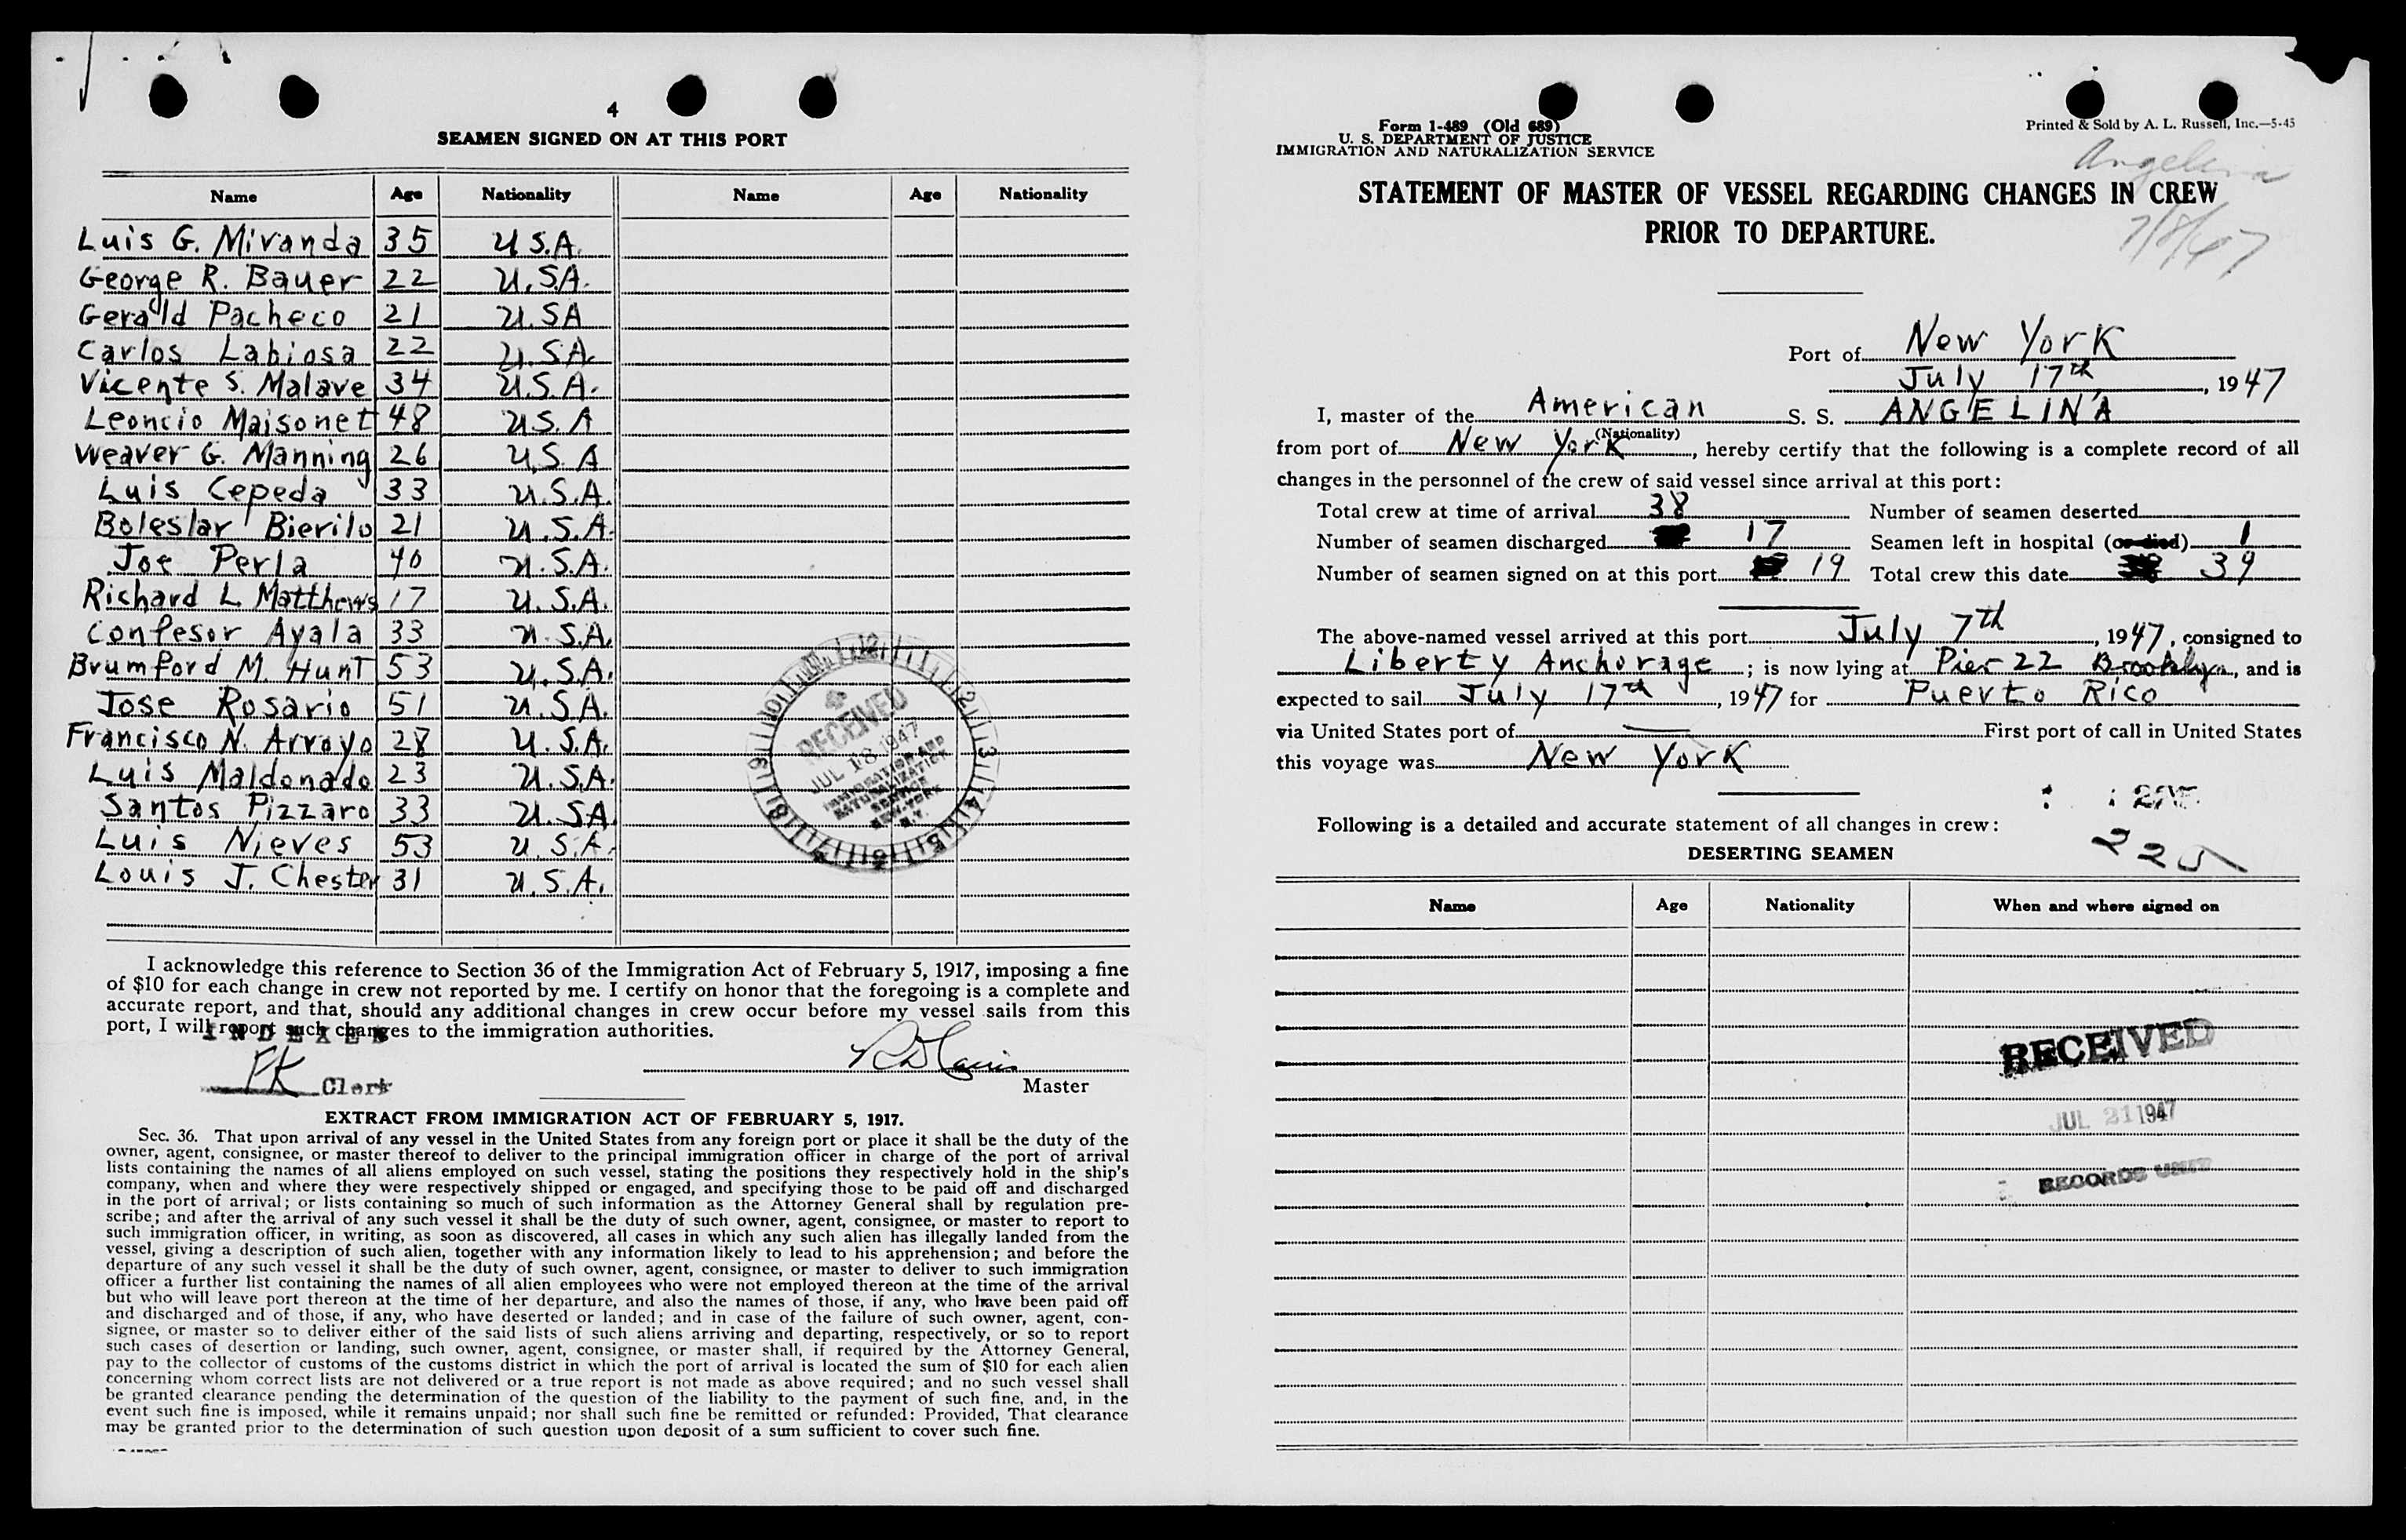 4
SEAMEN SIGNED ON AT THIS PORT
Name Age Nationality Name Age Nationality
Luis G. Miranda 35 U.S.A.
George R. Bauer 22 U.S.A.
Gerald Pacheco 21 U.S.A
Carlos Labiosa 22 U.S.A.
Vicente S. Malave 34 U.S.A.
Leoncio Maisonet 48 U.S.A
Weaver G. Manning 26 U.S.A
Luis Cepeda 33 U.S.A.
Boleslar Bierilo 21 U.S.A.
Joe Perla 40 U.S.A.
Richard L. Matthews 17 U.S.A.
Confesor Ayala 33 U.S.A.
Brumford M. Hunt 53 U.S.A.
Jose Rosario 51 U.S.A.
Francisco N. Arroyo 28 U.S.A.
Luis Maldonado 23 U.S.A.
Santos Pizzaro 33 U.S.A.
Luis Nieves 53 U.S.A.
Louis J. Chester 31 U.S.A.
RECEIVED
JUL 18 1947
IMMIGRATION AND
NATURALIZATION
SERVICE
NEW-YORK
N.Y.
I acknowledge this reference to Section 36 of the Immigration Act of February 5, 1917, imposing a fine
of $10 for each change in crew not reported by me. I certify on honor that the foregoing is a complete and
accurate report, and that, should any additional changes in crew occur before my vessel sails from this
port, I will report such changes to the immigration authorities.
INDEXED
FK Clerk
Master
EXTRACT FROM IMMIGRATION ACT OF FEBRUARY 5, 1917.
Sec. 36. That upon arrival of any vessel in the United States from any foreign port or place it shall be the duty of the
owner, agent, consignee, or master thereof to deliver to the principal immigration officer in charge of the port of arrival
lists containing the names of all aliens employed on such vessel, stating the positions they respectively hold in the ship's
company, when and where they were respectively shipped or engaged, and specifying those to be paid off and discharged
in the port of arrival; or lists containing so much of such information as the Attorney General shall by regulation pre-
scribe; and after the arrival of any such vessel it shall be the duty of such owner, agent, consignee, or master to report to
such immigration officer, in writing, as soon as discovered, all cases in which any such alien has illegally landed from the
vessel, giving a description of such alien, together with any information likely to lead to his apprehension; and before the
departure of any such vessel it shall be the duty of such owner, agent, consignee, or master to deliver to such immigration
officer a further list containing the names of all alien employees who were not employed thereon at the time of the arrival
but who will leave port thereon at the time of her departure, and also the names of those, if any, who have been paid off
and discharged and of those, if any, who have deserted or landed; and in case of the failure of such owner, agent, con-
signee, or master so to deliver either of the said lists of such aliens arriving and departing, respectively, or so to report
such cases of desertion or landing, such owner, agent, consignee, or master shall, if required by the Attorney General,
pay to the collector of customs of the customs district in which the port of arrival is located the sum of $10 for each alien
concerning whom correct lists are not delivered or a true report is not made as above required; and no such vessel shall
be granted clearance pending the determination of the question of the liability to the payment of such fine, and, in the
event such fine is imposed, while it remains unpaid; nor shall such fine be remitted or refunded: Provided, That clearance
may be granted prior to the determination of such question upon deposit of a sum sufficient to cover such fine.
Form 1-489 (Old 689)
U. S. DEPARTMENT OF JUSTICE
IMMIGRATION AND NATURALIZATION SERVICE
Printed & Sold by A. L. Russell, Inc.—5-45
Angelina
7/8/47
STATEMENT OF MASTER OF VESSEL REGARDING CHANGES IN CREW
PRIOR TO DEPARTURE.
Port of New York
July 17th, 1947
I, master of the American S. S. ANGELINA
(Nationality)
from port of New York, hereby certify that the following is a complete record of all
changes in the personnel of the crew of said vessel since arrival at this port:
Total crew at time of arrival 38 Number of seamen deserted
Number of seamen discharged 17 Seamen left in hospital (or died) 1
Number of seamen signed on at this port 19 Total crew this date 39
The above-named vessel arrived at this port July 7th, 1947, consigned to
Liberty Anchorage; is now lying at Pier 22 Brooklyn, and is
expected to sail July 17th, 1947 for Puerto Rico
via United States port of — First port of call in United States
this voyage was New York
Following is a detailed and accurate statement of all changes in crew:
225
DESERTING SEAMEN
Name Age Nationality When and where signed on
RECEIVED
JUL 21 1947
RECORDS UNIT